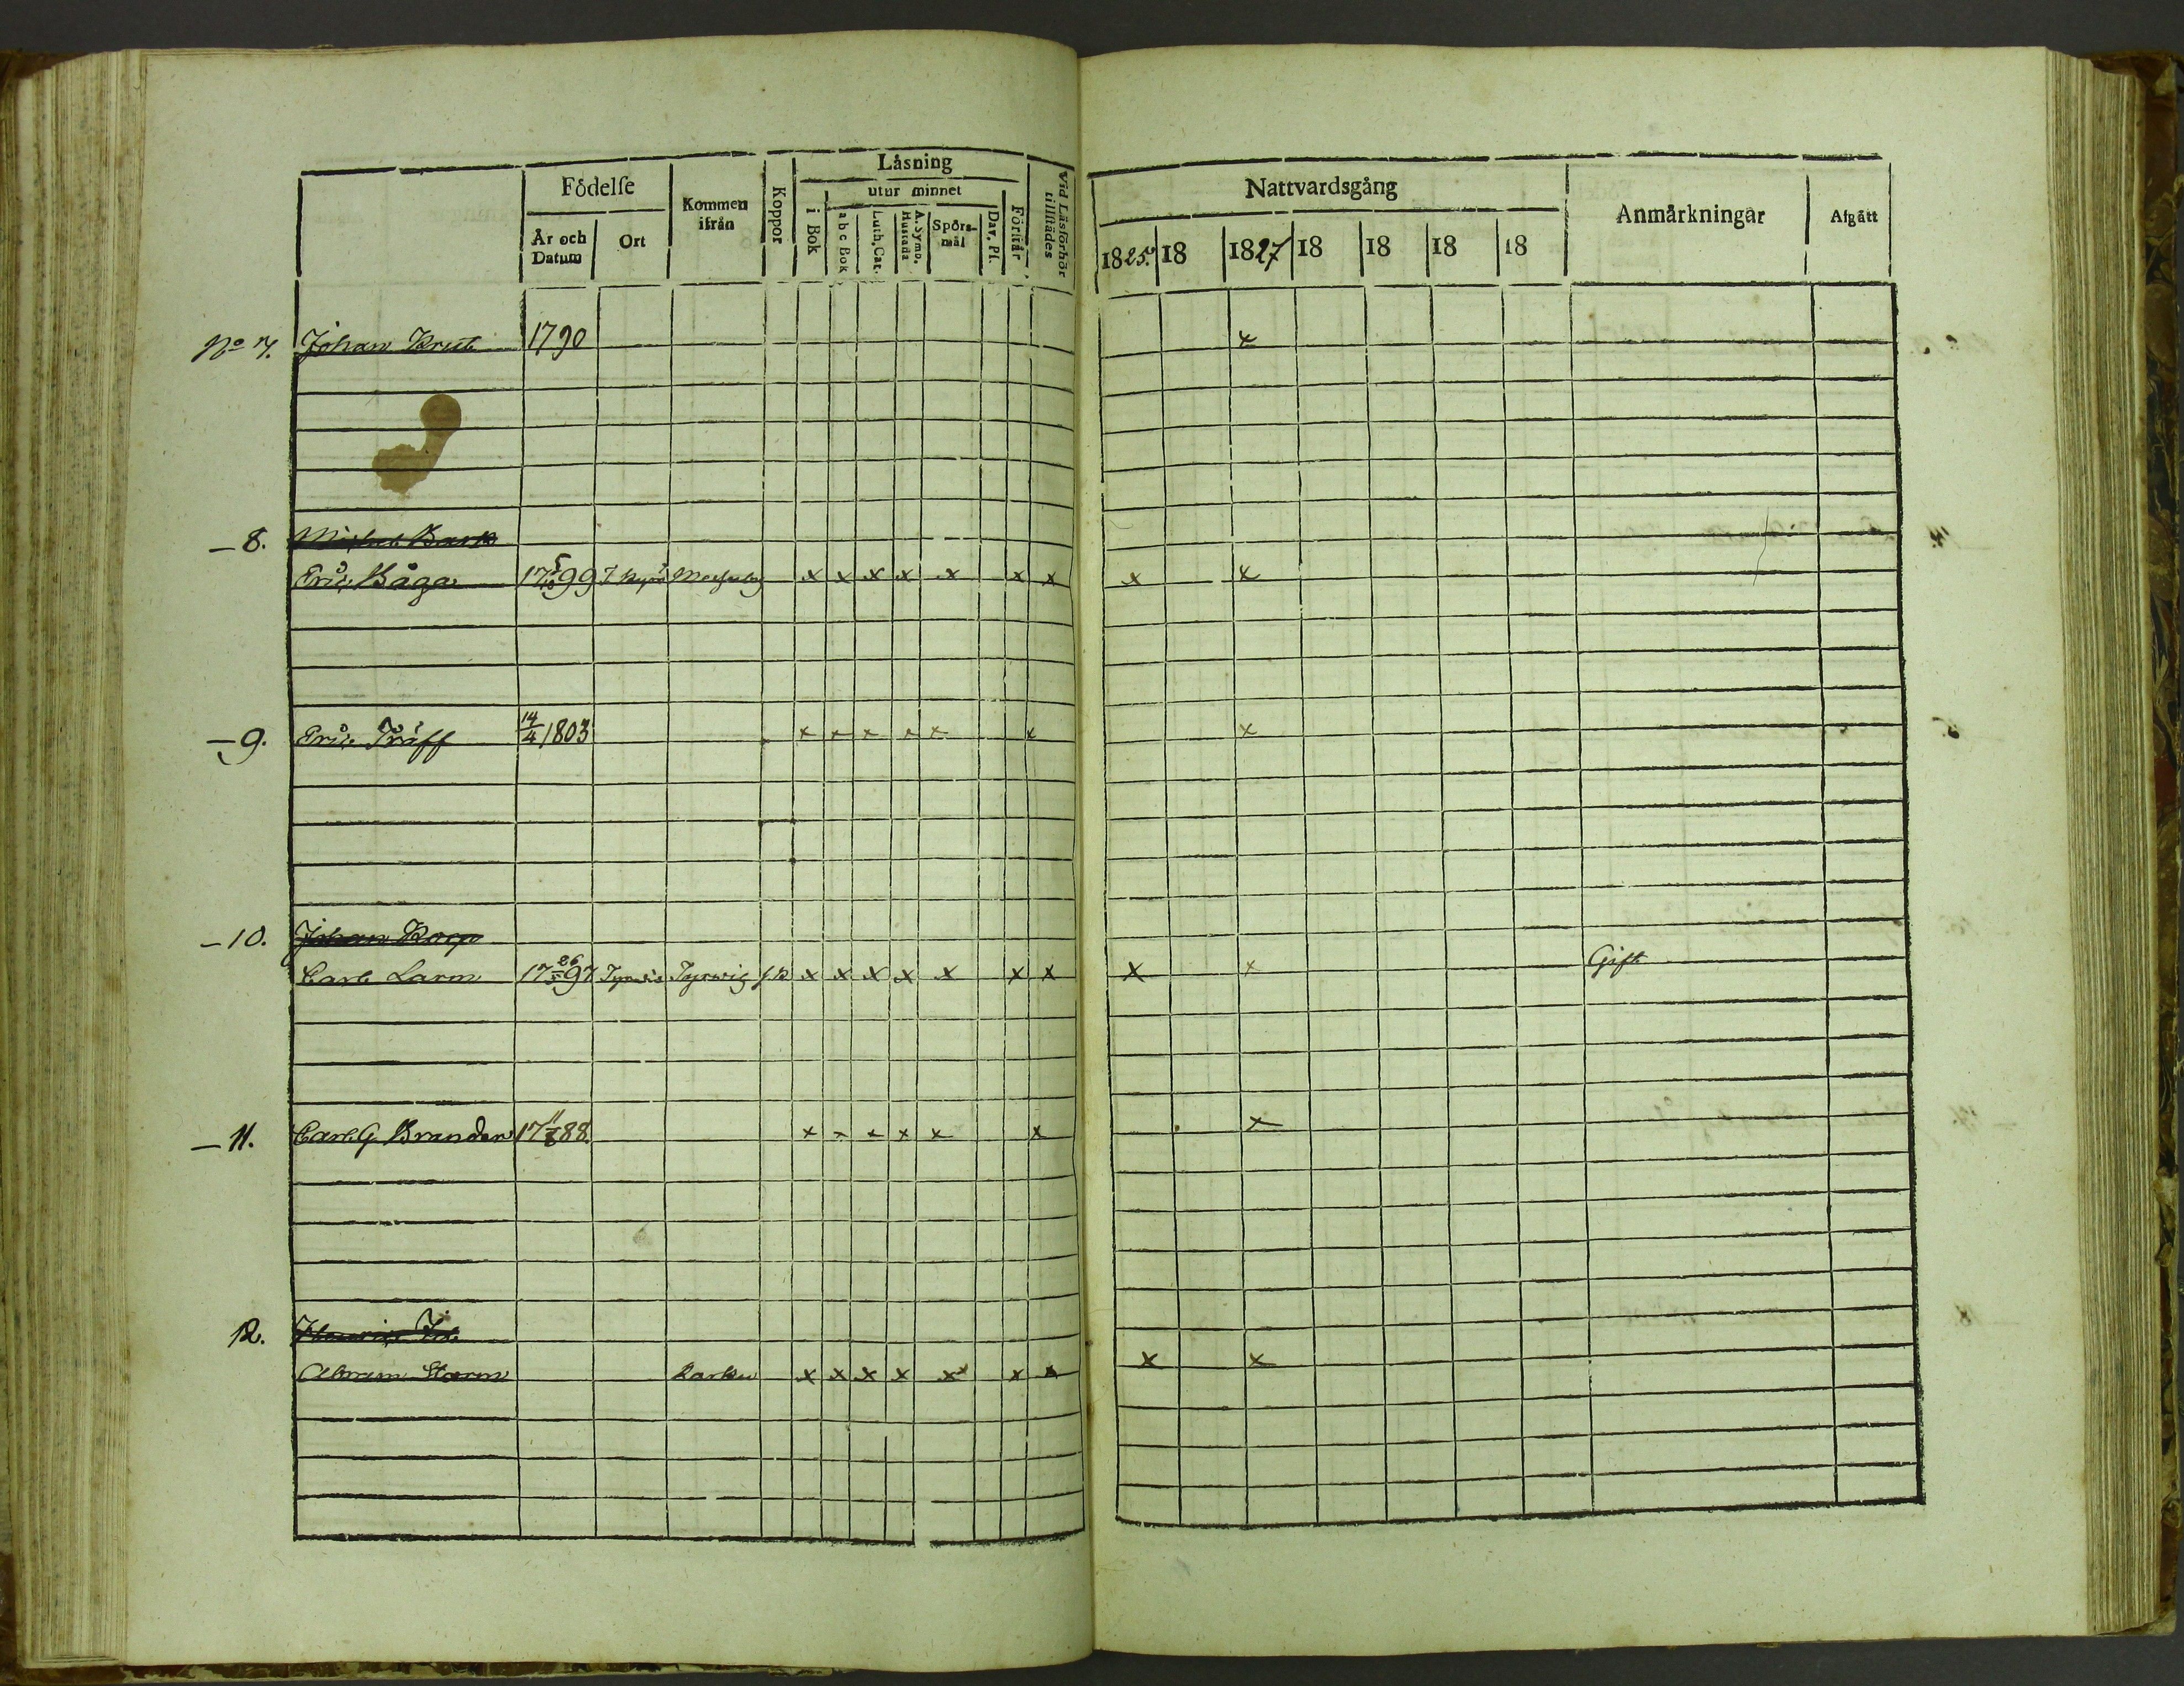 Födelse
Kommen ifrån
Koppor
Läsning
utur minnet
i Bok
a b c Bok
Luth. Cat.
A. Symb. Hustafla
Spörsmål
Dav. Ps.
Förstår
Vid Läsförhör tillstädes
År och Datum
Ort
Nattvardsgång
Anmärkningar
Afgått
1825. 18 1827 18 18 18 18
No 7. Johan Krut 1790 x
— 8. Michel Bark
Eric Båga 17 5/10 99 x x x x x x x x x
— 9. Eric Träff 14/4 1803 x x x x x x x
— 10. Johan Rorp
Carl Larm 17 26/5 97 Tyrwis Tyrwis x x x x x x x x x Gift
— 11. Carl G. Brander 17 11/8 88. x x x x x x x
12.
Abram Storm Karku x x x x x x x x x x